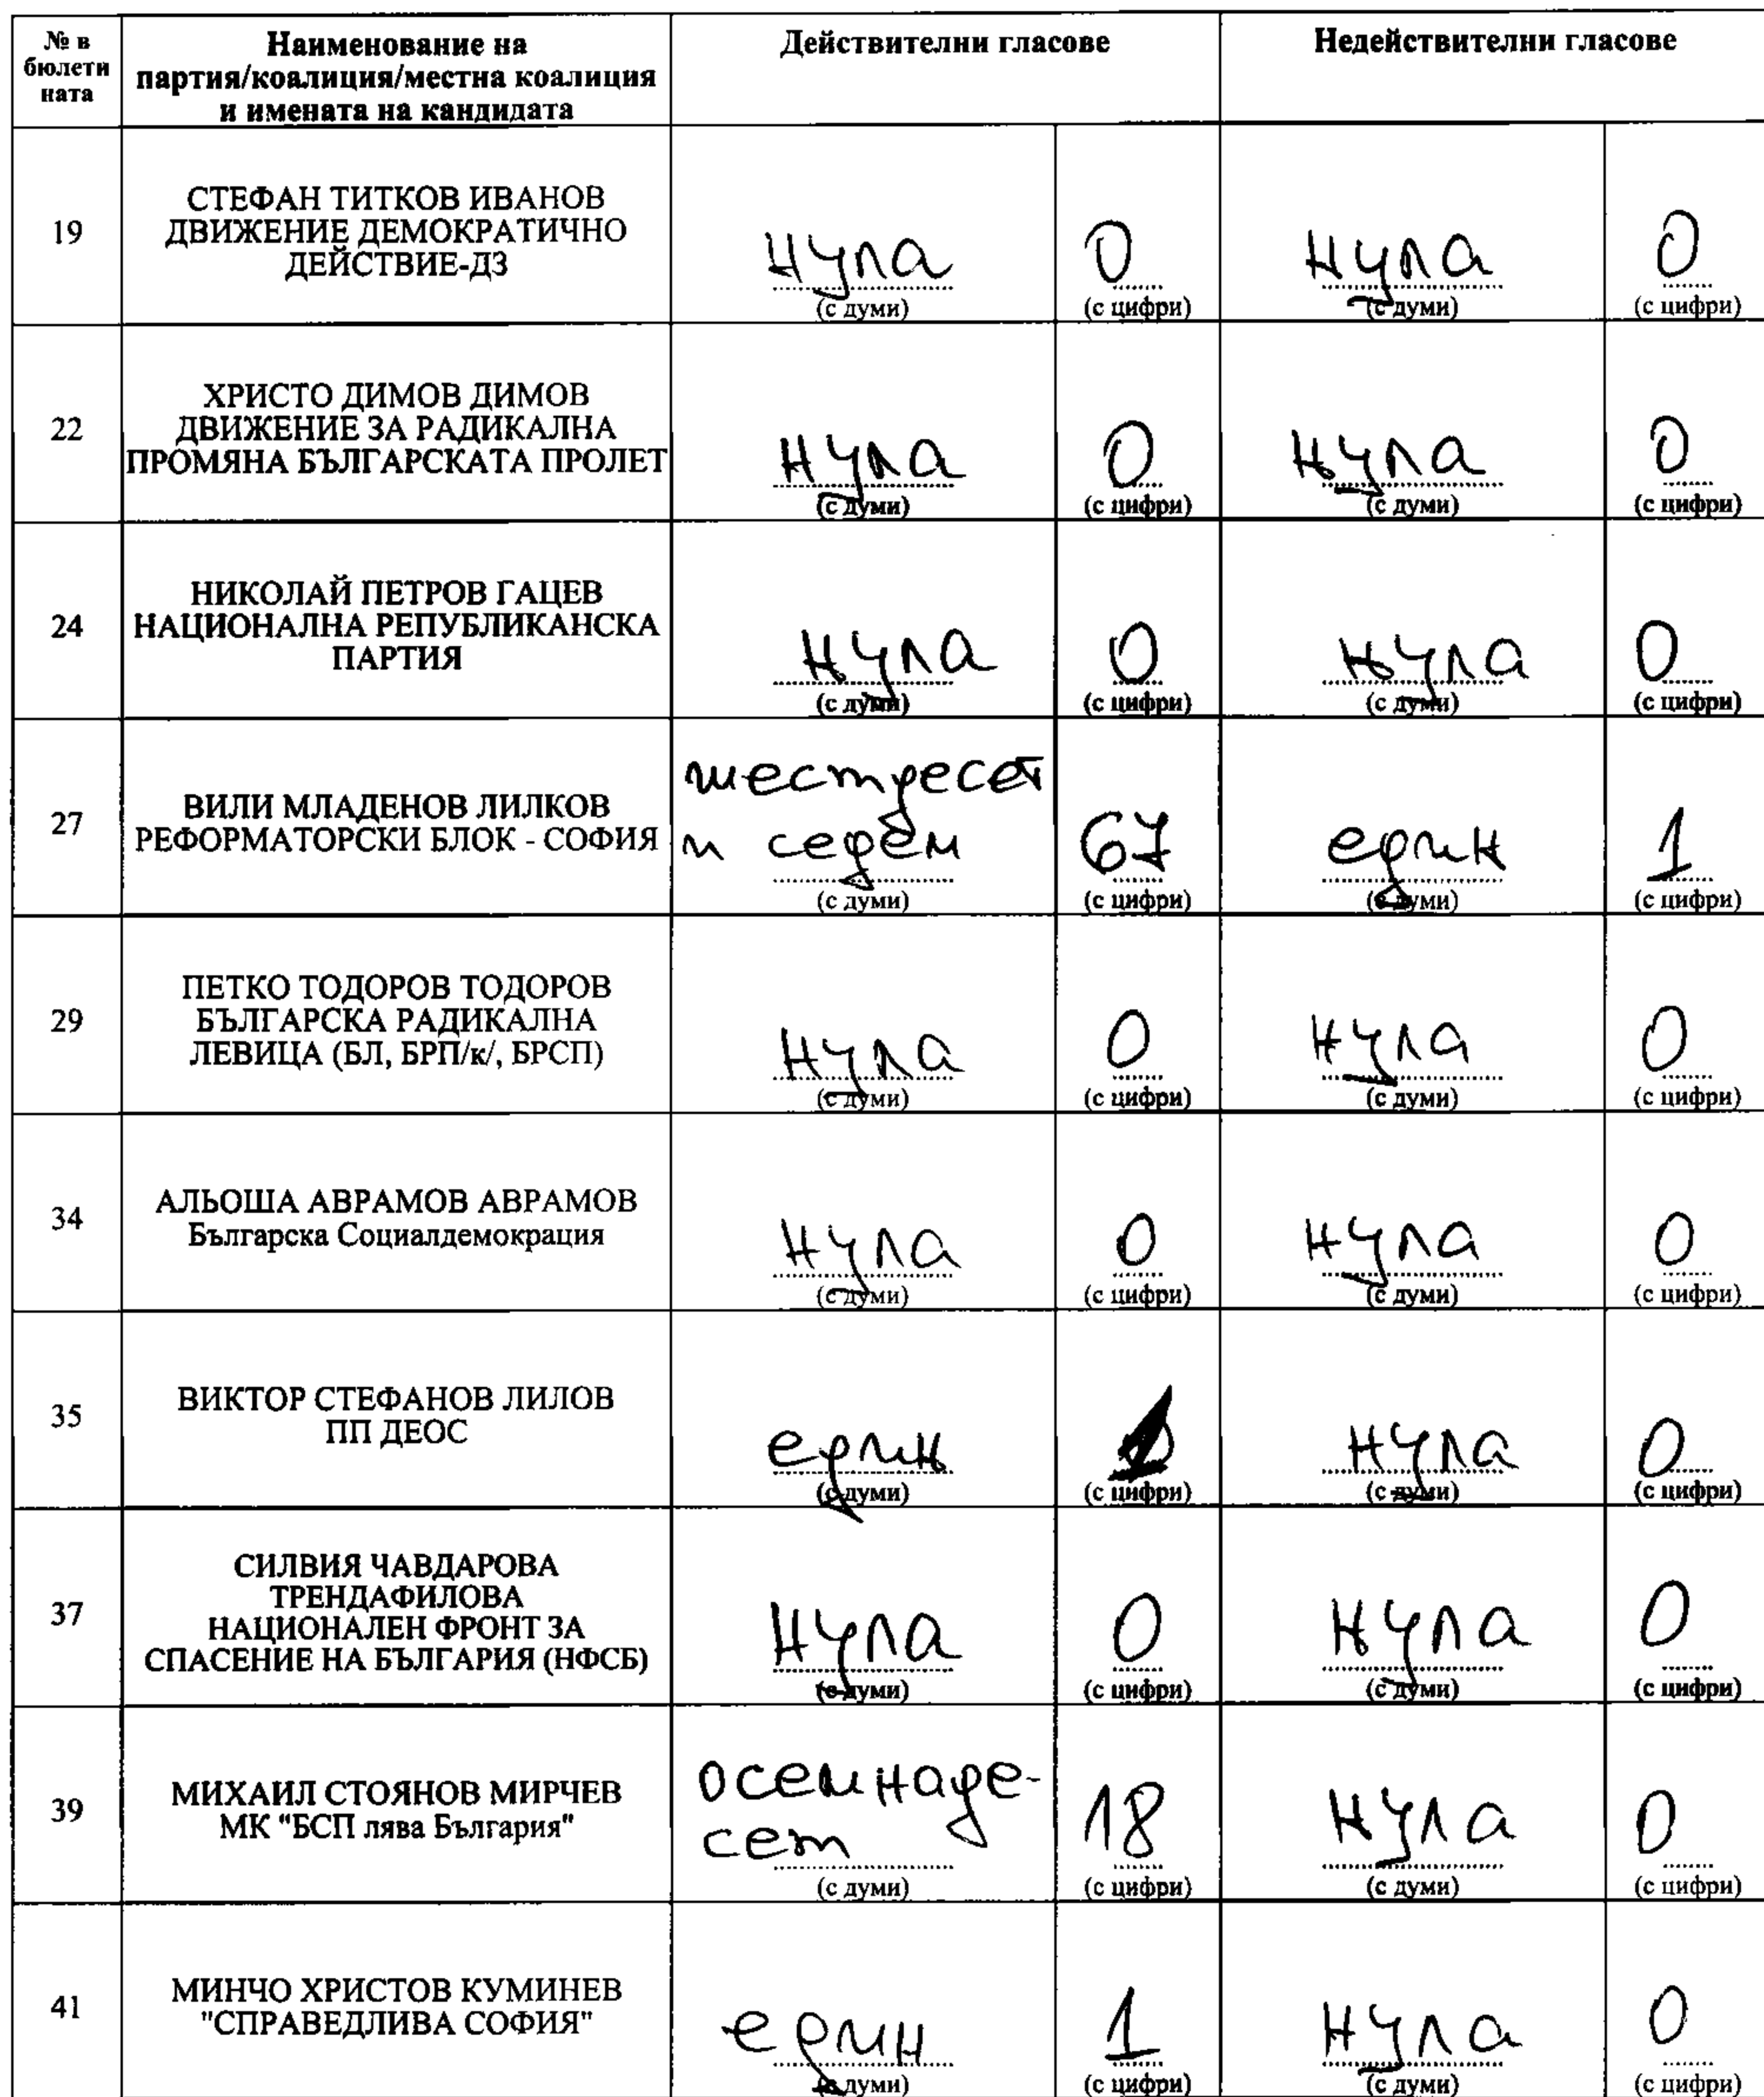 № в бюлети ната
Наименование на партия/коалиция/местна коалиция и имената на кандидата
Действителни гласове
Недействителни гласове
19
СТЕФАН ТИТКОВ ИВАНОВ
ДВИЖЕНИЕ ДЕМОКРАТИЧНО
ДЕЙСТВИЕ-ДЗ
нула 0 нула 0
(с думи) (с цифри) (с думи) (с цифри)
22
ХРИСТО ДИМОВ ДИМОВ
ДВИЖЕНИЕ ЗА РАДИКАЛНА
ПРОМЯНА БЪЛГАРСКАТА ПРОЛЕТ
нула 0 нула 0
(с думи) (с цифри) (с думи) (с цифри)
24
НИКОЛАЙ ПЕТРОВ ГАЦЕВ
НАЦИОНАЛНА РЕПУБЛИКАНСКА
ПАРТИЯ
нула 0 нула 0
(с думи) (с цифри) (с думи) (с цифри)
27
ВИЛИ МЛАДЕНОВ ЛИЛКОВ
РЕФОРМАТОРСКИ БЛОК - СОФИЯ
шестдесет
и седем 67 един 1
(с думи) (с цифри) (с думи) (с цифри)
29
ПЕТКО ТОДОРОВ ТОДОРОВ
БЪЛГАРСКА РАДИКАЛНА
ЛЕВИЦА (БЛ, БРП/к/, БРСП)
нула 0 нула 0
(с думи) (с цифри) (с думи) (с цифри)
34
АЛЬОША АВРАМОВ АВРАМОВ
Българска Социалдемокрация
нула 0 нула 0
(с думи) (с цифри) (с думи) (с цифри)
35
ВИКТОР СТЕФАНОВ ЛИЛОВ
ПП ДЕОС
един 1 нула 0
(с думи) (с цифри) (с думи) (с цифри)
37
СИЛВИЯ ЧАВДАРОВА
ТРЕНДАФИЛОВА
НАЦИОНАЛЕН ФРОНТ ЗА
СПАСЕНИЕ НА БЪЛГАРИЯ (НФСБ)
нула 0 нула 0
(с думи) (с цифри) (с думи) (с цифри)
39
МИХАИЛ СТОЯНОВ МИРЧЕВ
МК "БСП лява България"
осемнаде-
сет 18 нула 0
(с думи) (с цифри) (с думи) (с цифри)
41
МИНЧО ХРИСТОВ КУМИНЕВ
"СПРАВЕДЛИВА СОФИЯ"
един 1 нула 0
(с думи) (с цифри) (с думи) (с цифри)